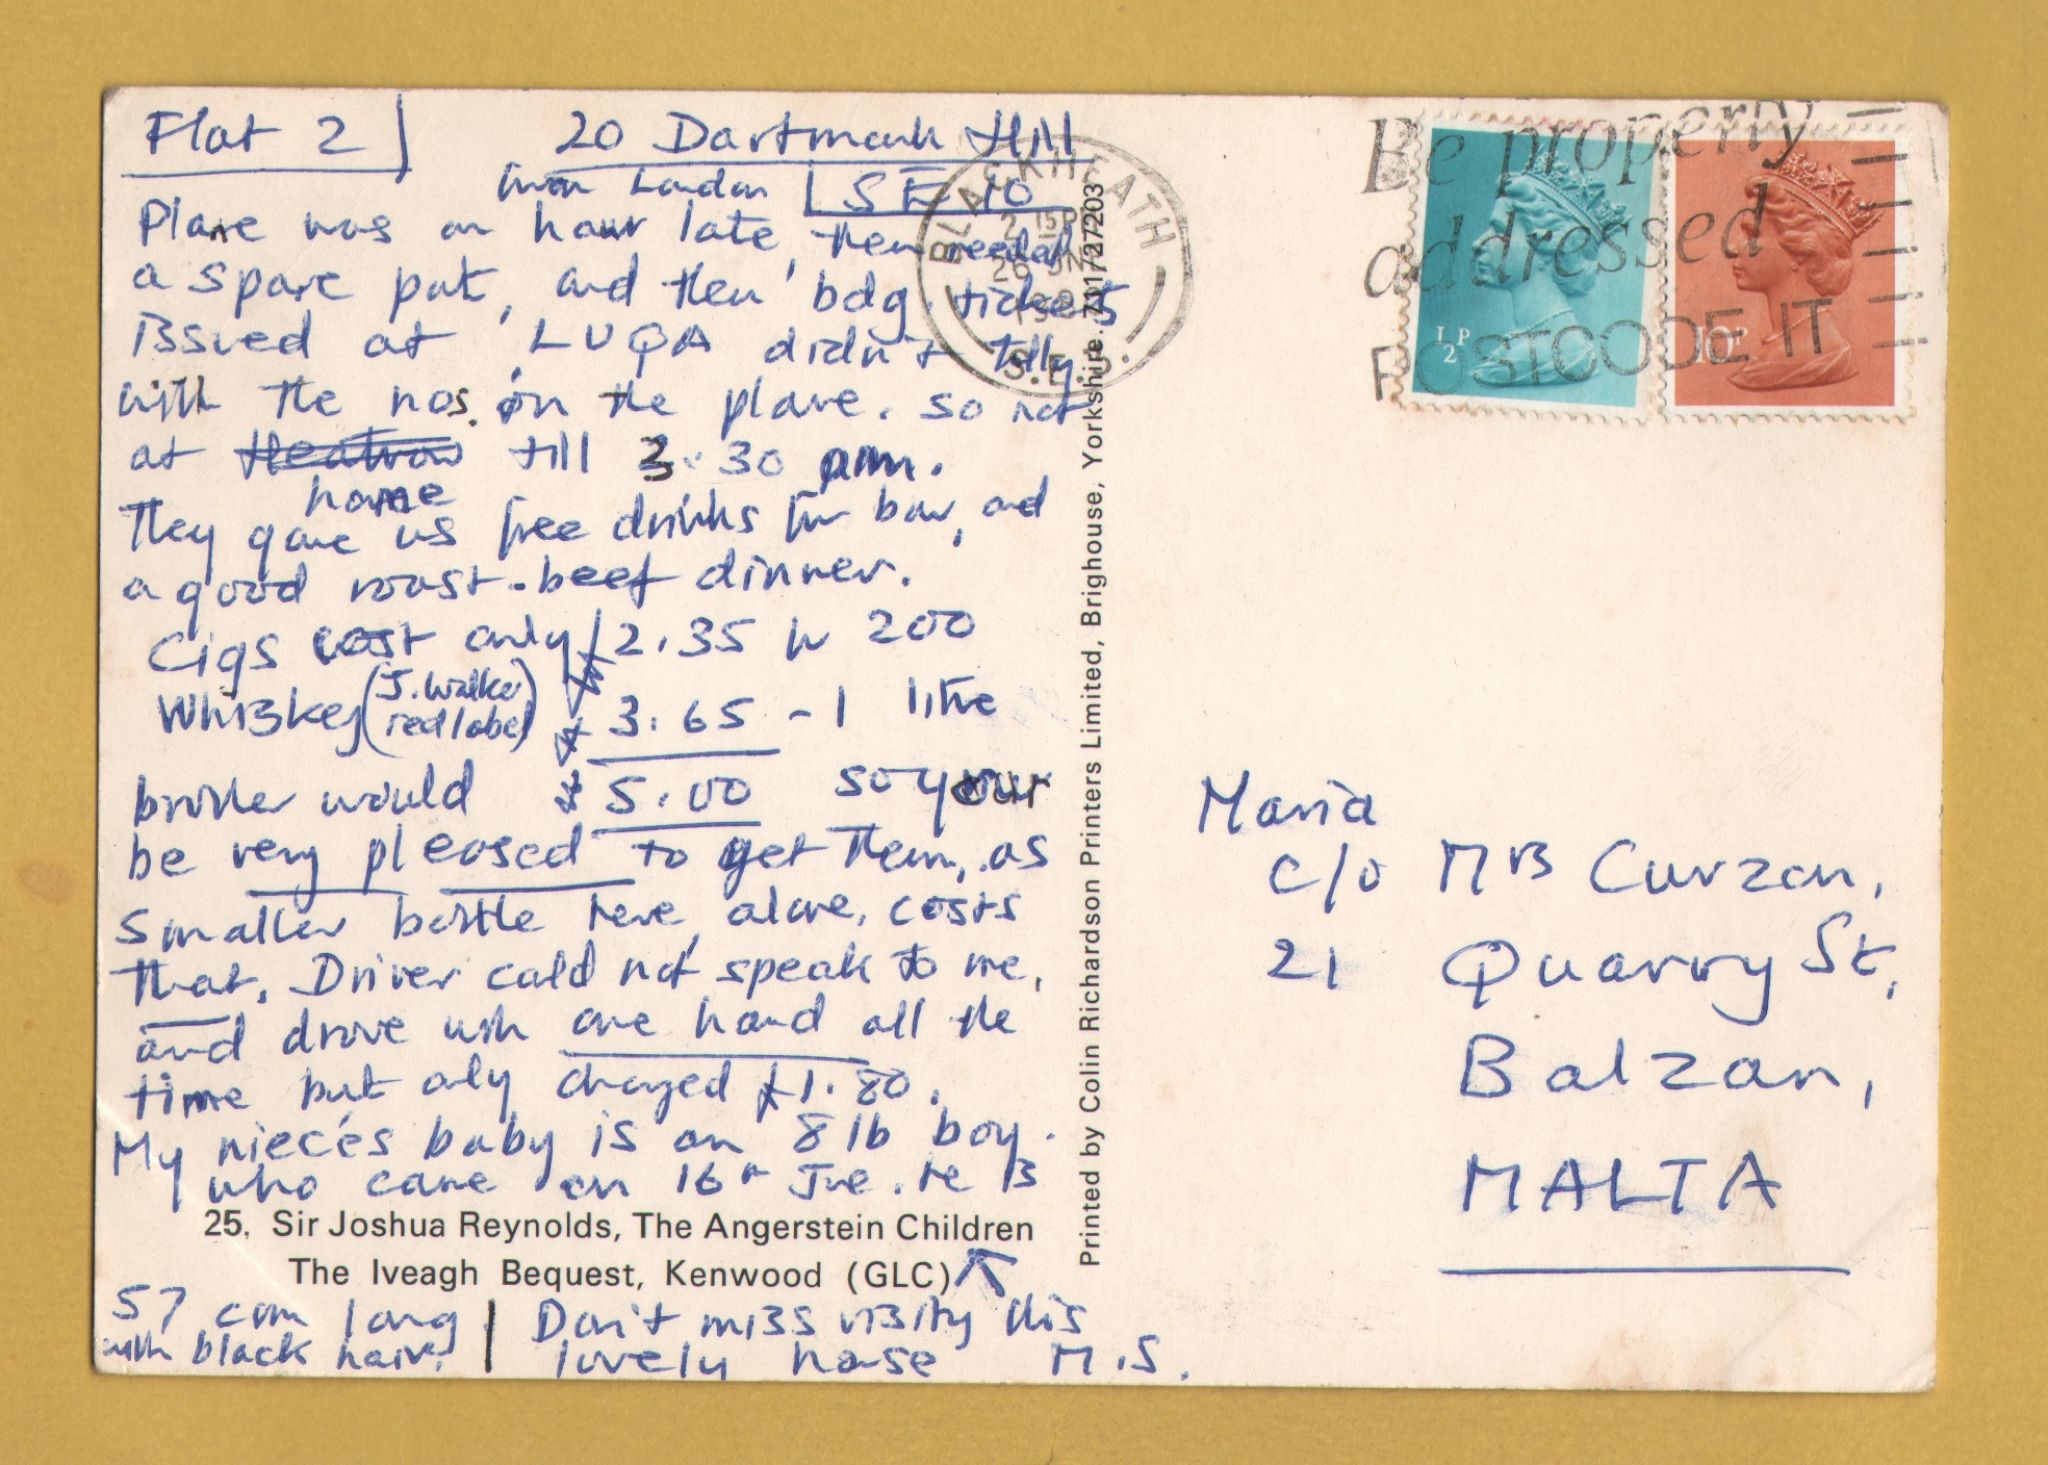 Flat 2
20 Dartmouth Hill
London SE 10
Plane was an hour late, then needed
a spare part, and then bdg. tickets
issued at LUQA didn't tally
with the nos. on the plane. so not
at Heathrow till 3.30 am.
home
They gave us free drinks fm bar, and
a good roast-beef dinner.
Cigs cost only £2.35 fr 200
Whiskey (J. Walker red label) £3.65 - 1 litre
£5.00 so your
brother would
be very pleased to get them, as
smaller bottle here, alone, costs
that. Driver could not speak to me,
and drove with one hand all the
time but only charged £1.80.
My niece's baby is an 8 lb boy.
who came on 16th Jne. He is
25. Sir Joshua Reynolds, The Angerstein Children
The Iveagh Bequest, Kenwood (GLC)
57 cm long
with black hair.
Don't miss visitg this
lovely house M.S.
Printed by Colin Richardson Printers Limited, Brighouse, Yorkshire. 7701/27203
BLACKHEATH
2 15 P
26 JN
S.E.3.
Be properly
addressed
POSTCODE IT
½P
10P
Maria
c/o Mrs Curzon,
21 Quarry St,
Balzan,
MALTA